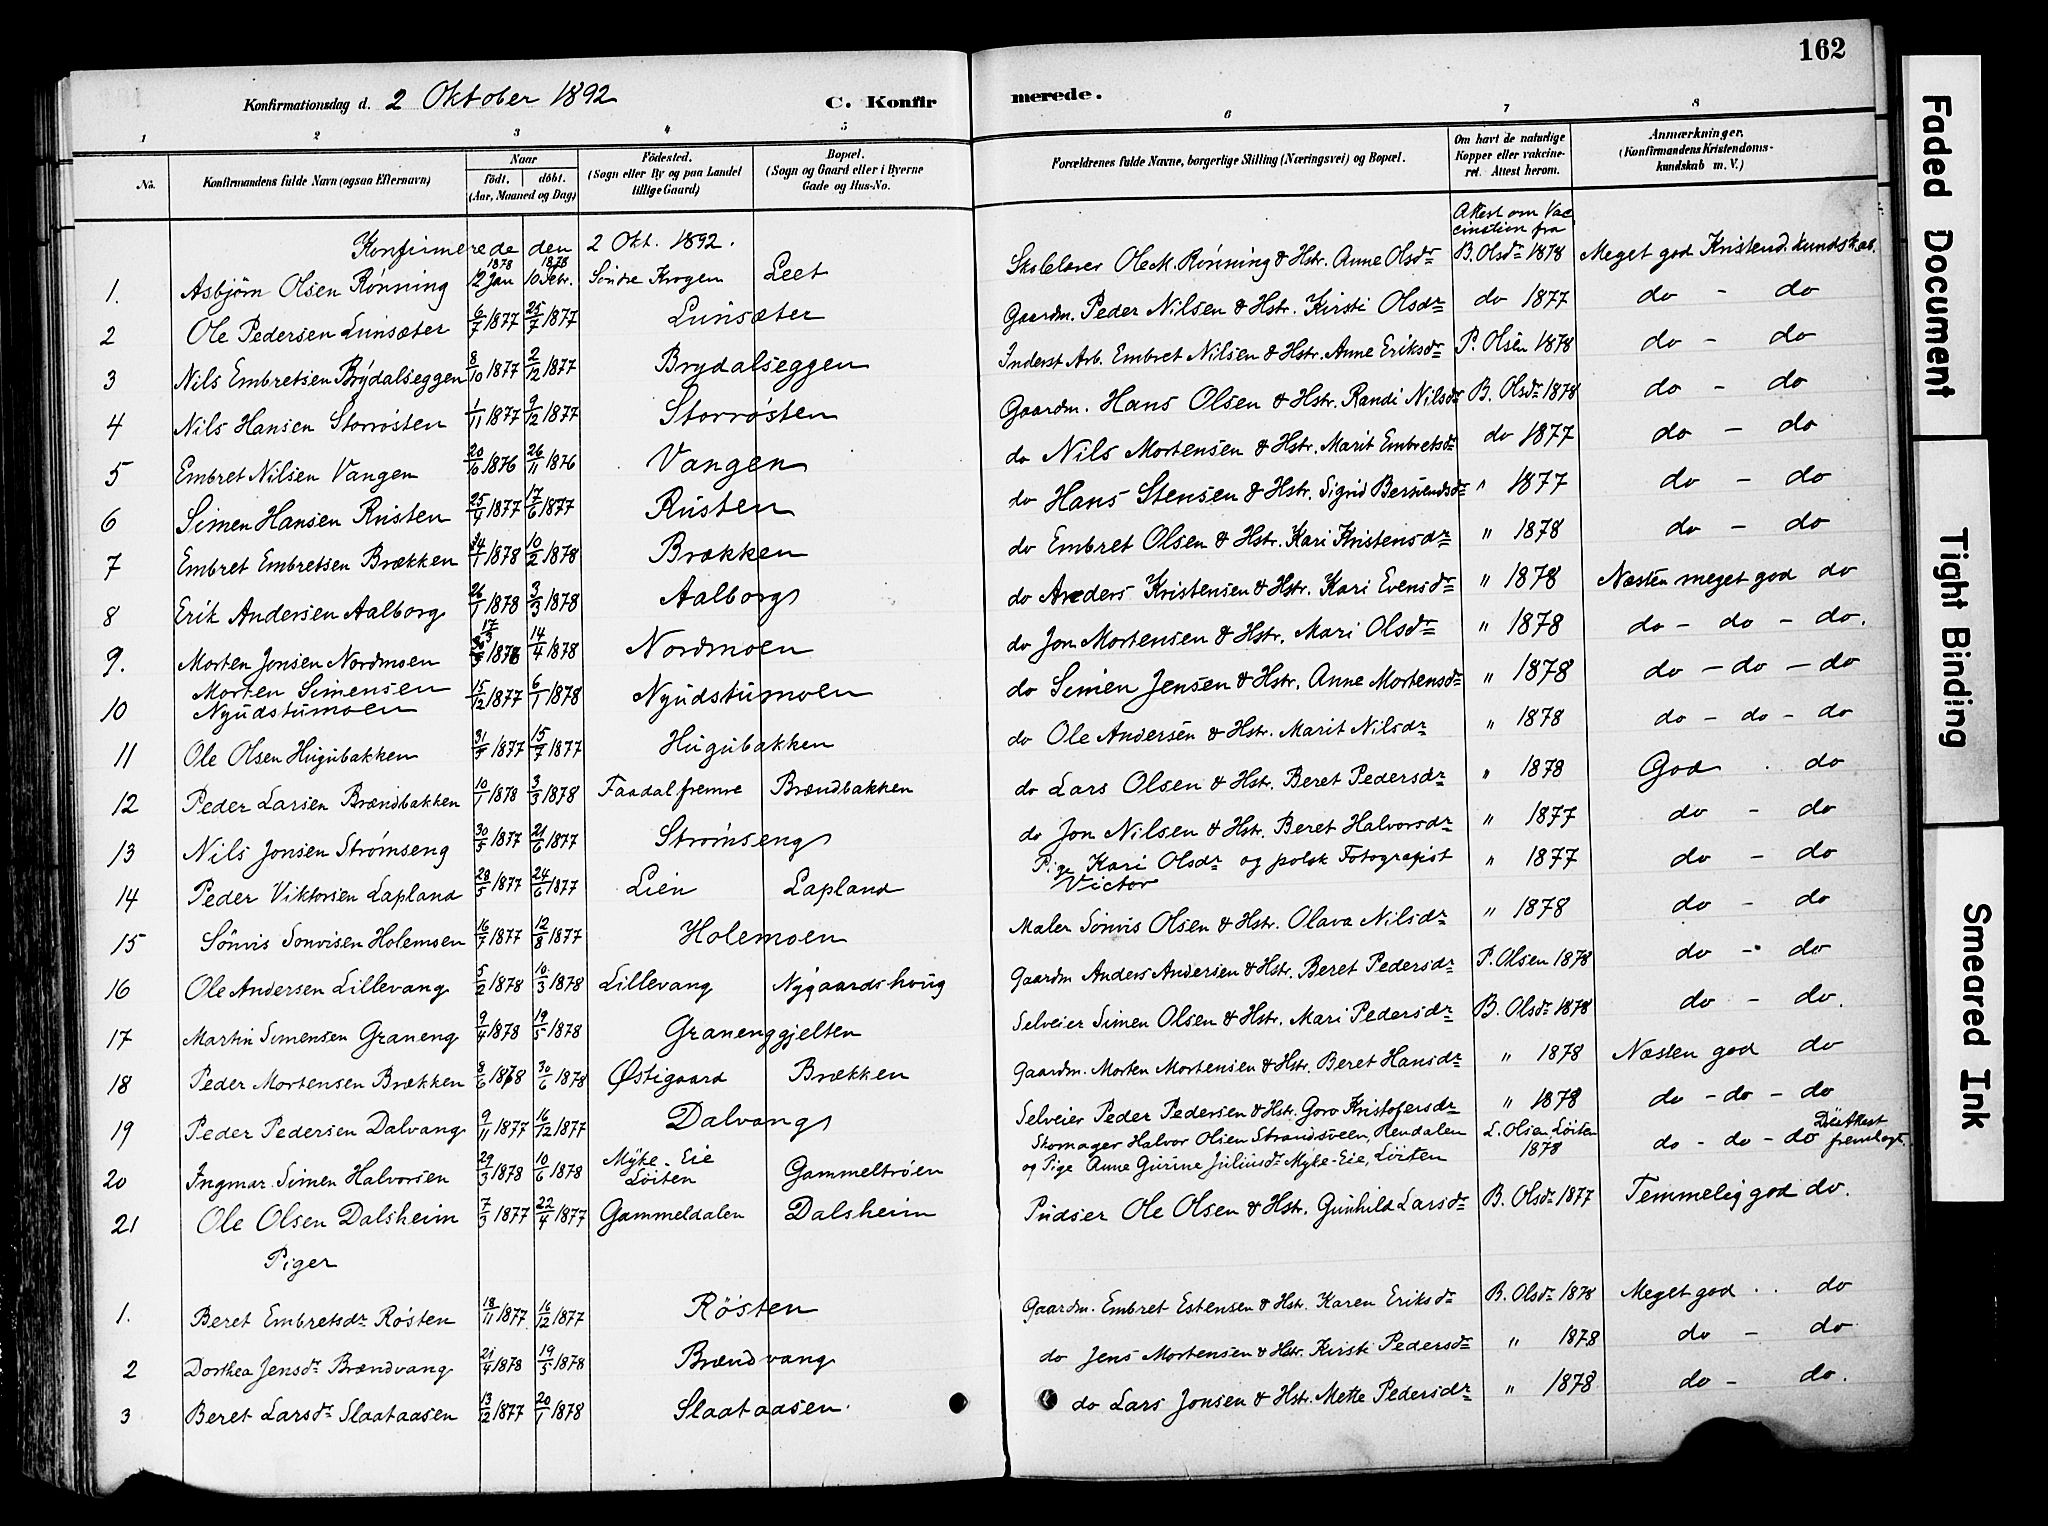 162
Konfirmationsdag d. 2 Oktober 1892 C. Konfirmerede.
1 2 3 4 5 6 7 8
No. Konfirmandens fulde Navn (ogsaa Efternavn) Naar født. døbt. (Aar, Maaned og Dag) Fødested. (Sogn eller By og paa Landet tillige Gaard) Bopæl. (Sogn og Gaard eller i Byerne Gade og Hus-No. Forældrenes fulde Navne, borgerlige Stilling (Næringsvei) og Bopæl. Om havt de naturlige Kopper eller vakcineret. Attest herom. Anmærkninger. (Konfirmandens Kristendomskundskab m. V.)
Konfirmerede den 2 Okt. 1892. Attest om Vaccination fra
1. Asbjørn Olsen Rønning 1878 12 Jan 1878 10 Febr. Søndre Krogen Leet Skolelærer Ole M. Rønning & Hstr. Anne Olsdr B. Olsdr 1878 Meget god Kristend. kundskab.
2 Ole Pedersen Lunsæter 6/7 1877 25/7 1877 Lunsæter Gaardm. Peder Nilsen & Hstr. Kirsti Olsdr do 1877 do - do
3 Nils Embretsen Brydalseggen 8/10 1877 2/12 1877 Brydalseggen Inderst Arb. Embret Nilsen & Hstr. Anne Eriksdr P. Olsen 1878 do - do
4 Nils Hansen Storrøsten 1/11 1877 9/12 1877 Storrøsten Gaardm. Hans Olsen & Hstr. Randi Nilsdr B. Olsdr 1878 do - do
5 Embret Nilsen Vangen 20/10 1876 26/11 1876 Vangen do Nils Mortensen & Hstr. Marit Embretsdr do 1877 do - do
6 Simen Hansen Rusten 25/4 1877 17/6 1877 Rusten do Hans Stensen & Hstr. Sigrid Bersvendsdr " 1877 do - do
7 Embret Embretsen Brækken 1878 10/2 1878 Brækken do Embret Olsen & Hstr. Kari Kristensdr " 1878 do - do
8 Erik Andersen Aalborg 26/1 1878 3/3 1878 Aalborg do Anders Kristensen & Hstr. Kari Evensdr " 1878 Næsten meget god do
9. Morten Jonsen Nordmoen 17/3 1878 14/4 1878 Nordmoen do Jon Mortensen & Hstr. Mari Olsdr " 1878 do - do - do.
10 Morten Simensen Nyudstumoen 15/12 1877 6/1 1878 Nyudstumoen do Simen Jensen & Hstr. Anne Mortensdr " 1878 do - do - do
11 Ole Olsen Hugubakken 31/5 1877 15/7 1877 Hugubakken do Ole Andersen & Hstr. Marit Nilsdr " 1878 do - do - do
12 Peder Larsen Brændbakken 10/1 1878 3/3 1878 Faadal fremre Brændbakken do Lars Olsen & Hstr. Beret Pedersdr " 1878 God . do
13 Nils Jonsen Strømseng 30/5 1877 21/6 1877 Strømseng do Jon Nilsen & Hstr. Beret Halvorsdr " 1877 do - do
14 Peder Viktorsen Lapland 28/5 1877 24/6 1877 Lien Lapland Pige Kari Olsdr og polsk Fotografist Victor " 1877 do - do
15 Sønvis Sonvisen Holemoen 16/7 1877 12/8 1877 Holemoen Maler Sønvis Olsen & Hstr. Olava Nilsdr " 1878 do - do
16 Ole Andersen Lillevang 5/2 1878 10/3 1878 Lillevang Nygaardshoug Gaardm Anders Andersen & Hstr. Beret Pedersdr P. Olsen 1878 do - do
17 Martin Simensen Graneng 9/4 1878 19/5 1878 Granenggjelten Selveier Simen Olsen & Hstr. Mari Pedersdr B. Olsdr 1878 do - do.
18 Peder Mortensen Brækken 8/6 1878 30/6 1878 Østigaard Brækken Gaardm. Morten Mortensen & Hstr. Beret Hansdr " 1878 Næsten god do
19 Peder Pedersen Dalvang 9/11 1877 16/12 1877 Dalvang Selveier Peder Pedersen & Hstr. Goro Kristofersdr " 1878 do - do - do
20 Ingmar Simen Halvorsen 29/3 1878 10/6 1878 Myke-Eie Løiten Gammeltrøen Skomager Halvor Olsen Strandsveen, Rendalen og Pige Anne Gurine Juliusdr Myke-Eie, Løiten L. Olsen Løiten 1878 do - do - do Døbattest fremlagt.
21 Ole Olsen Dalsheim 7/3 1877 22/4 1877 Gammeldalen Dalsheim Pudser Ole Olsen & Hstr. Gunhild Larsdr B. Olsdr 1877 Temmelig god do.
Piger
1. Beret Embretsdr Røsten 18/11 1877 16/12 1877 Røsten Gaardm. Embret Estensen & Hstr. Karen Eriksdr B. Olsdr 1878 Meget god . . do
2 Dorthea Jensdr Brændvang 21/4 1878 19/5 1878 Brændvang do Jens Mortensen & Hstr. Kirsti Pedersdr " 1878 do - do
3 Beret Larsdr Slaataasen 13/12 1877 20/1 1878 Slaataasen. do Lars Jonsen & Hstr. Mette Pedersdr " 1878 do - do.
Faded Document
Tight Binding
Smeared Ink